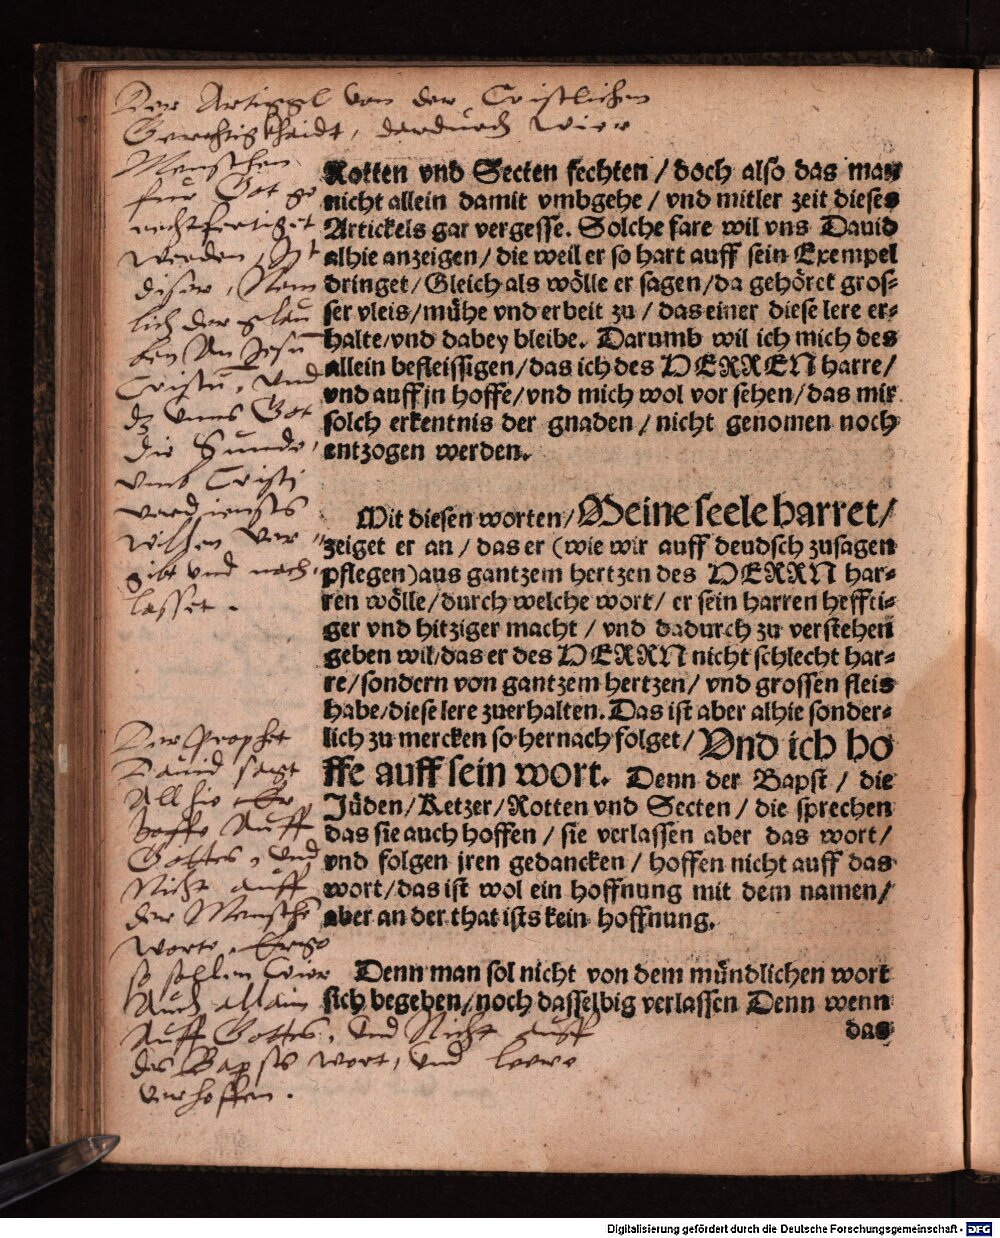 Der Artiggel von der Cristlichen
Gerechtigkhaidt, dardurch wier
Menschen
fur Got ge
rechtfertiget
werden, Ist
diser, Nem
lich der glau
ben An Jesu
Cristu, und
dz unns Got
die Sunde,
umb Cristi
verdiensts
willen ver
gibt und nach
lasset.
Rotten vnd Secten fechten / doch also das man
nicht allein damit vmbgehe / vnd mitler zeit dieses
Artickels gar vergesse. Solche fare wil vns Dauid
alhie anzeigen / die weil er so hart auff sein Exempel
dringet / Gleich als wölle er sagen / da gehöret gros-
ser vleis / mühe vnd erbeit zu / das einer diese lere er-
halte / vnd dabey bleibe. Darumb wil ich mich des
allein befleissigen / das ich des HERREN harre /
vnd auff jn hoffe / vnd mich wol vor sehen / das mir
solch erkentnis der gnaden / nicht genomen noch
entzogen werden.
Mit diesen worten / Meine seele harret /
zeiget er an / das er (wie wir auff deudsch zusagen
pflegen) aus gantzem hertzen des HERRN har-
ren wölle / durch welche wort / er sein harren hefftí-
ger vnd hitziger macht / vnd dadurch zu verstehen
geben wil / das er des HERRN nicht schlecht har-
re / sondern von gantzem hertzen / vnd grossen fleis
habe / diese lere zuerhalten. Das ist aber alhie sonder-
lich zu mercken so hernach folget / Vnd ich ho
ffe auff sein wort. Denn der Bapst / die
Jüden / Ketzer / Rotten vnd Secten / die sprechen
das sie auch hoffen / sie verlassen aber das wort /
vnd folgen jren gedancken / hoffen nicht auff das
wort / das ist wol ein hoffnung mit dem namen /
aber an der that ists kein hoffnung.
Denn man sol nicht von dem mündlichen wort
sich begeben / noch dasselbig verlassen Denn wenn
das
Der Prophet
Dauid sagt
All hie Er
hoffe Auff
Gottes, und
Nicht auff
der Mensche
worte. Ergo
so sollen wier
Auch allain
Auff Gottes, und Nicht auff
des Bapsts wort, und leere
verhoffen.
Digitalisierung gefördert durch die Deutsche Forschungsgemeinschaft - DFG